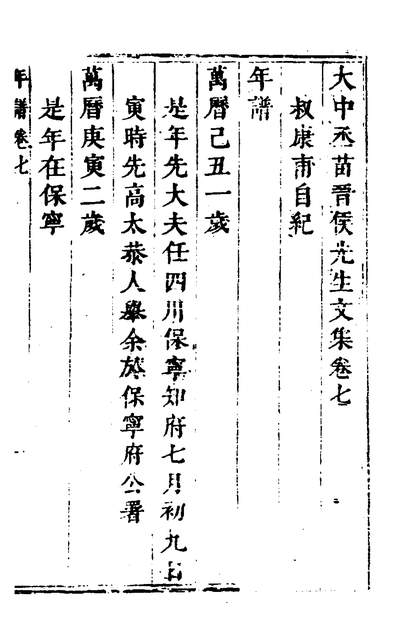 大中丞苗晋侯先生文集卷七
叔康甫自紀
年譜
萬曆己丑一歲
是年先大夫任四川保寧知府七月初九日
寅時先高太恭人舉余於保寧府公署
萬曆庚寅二歲
是年在保寧
年譜卷七